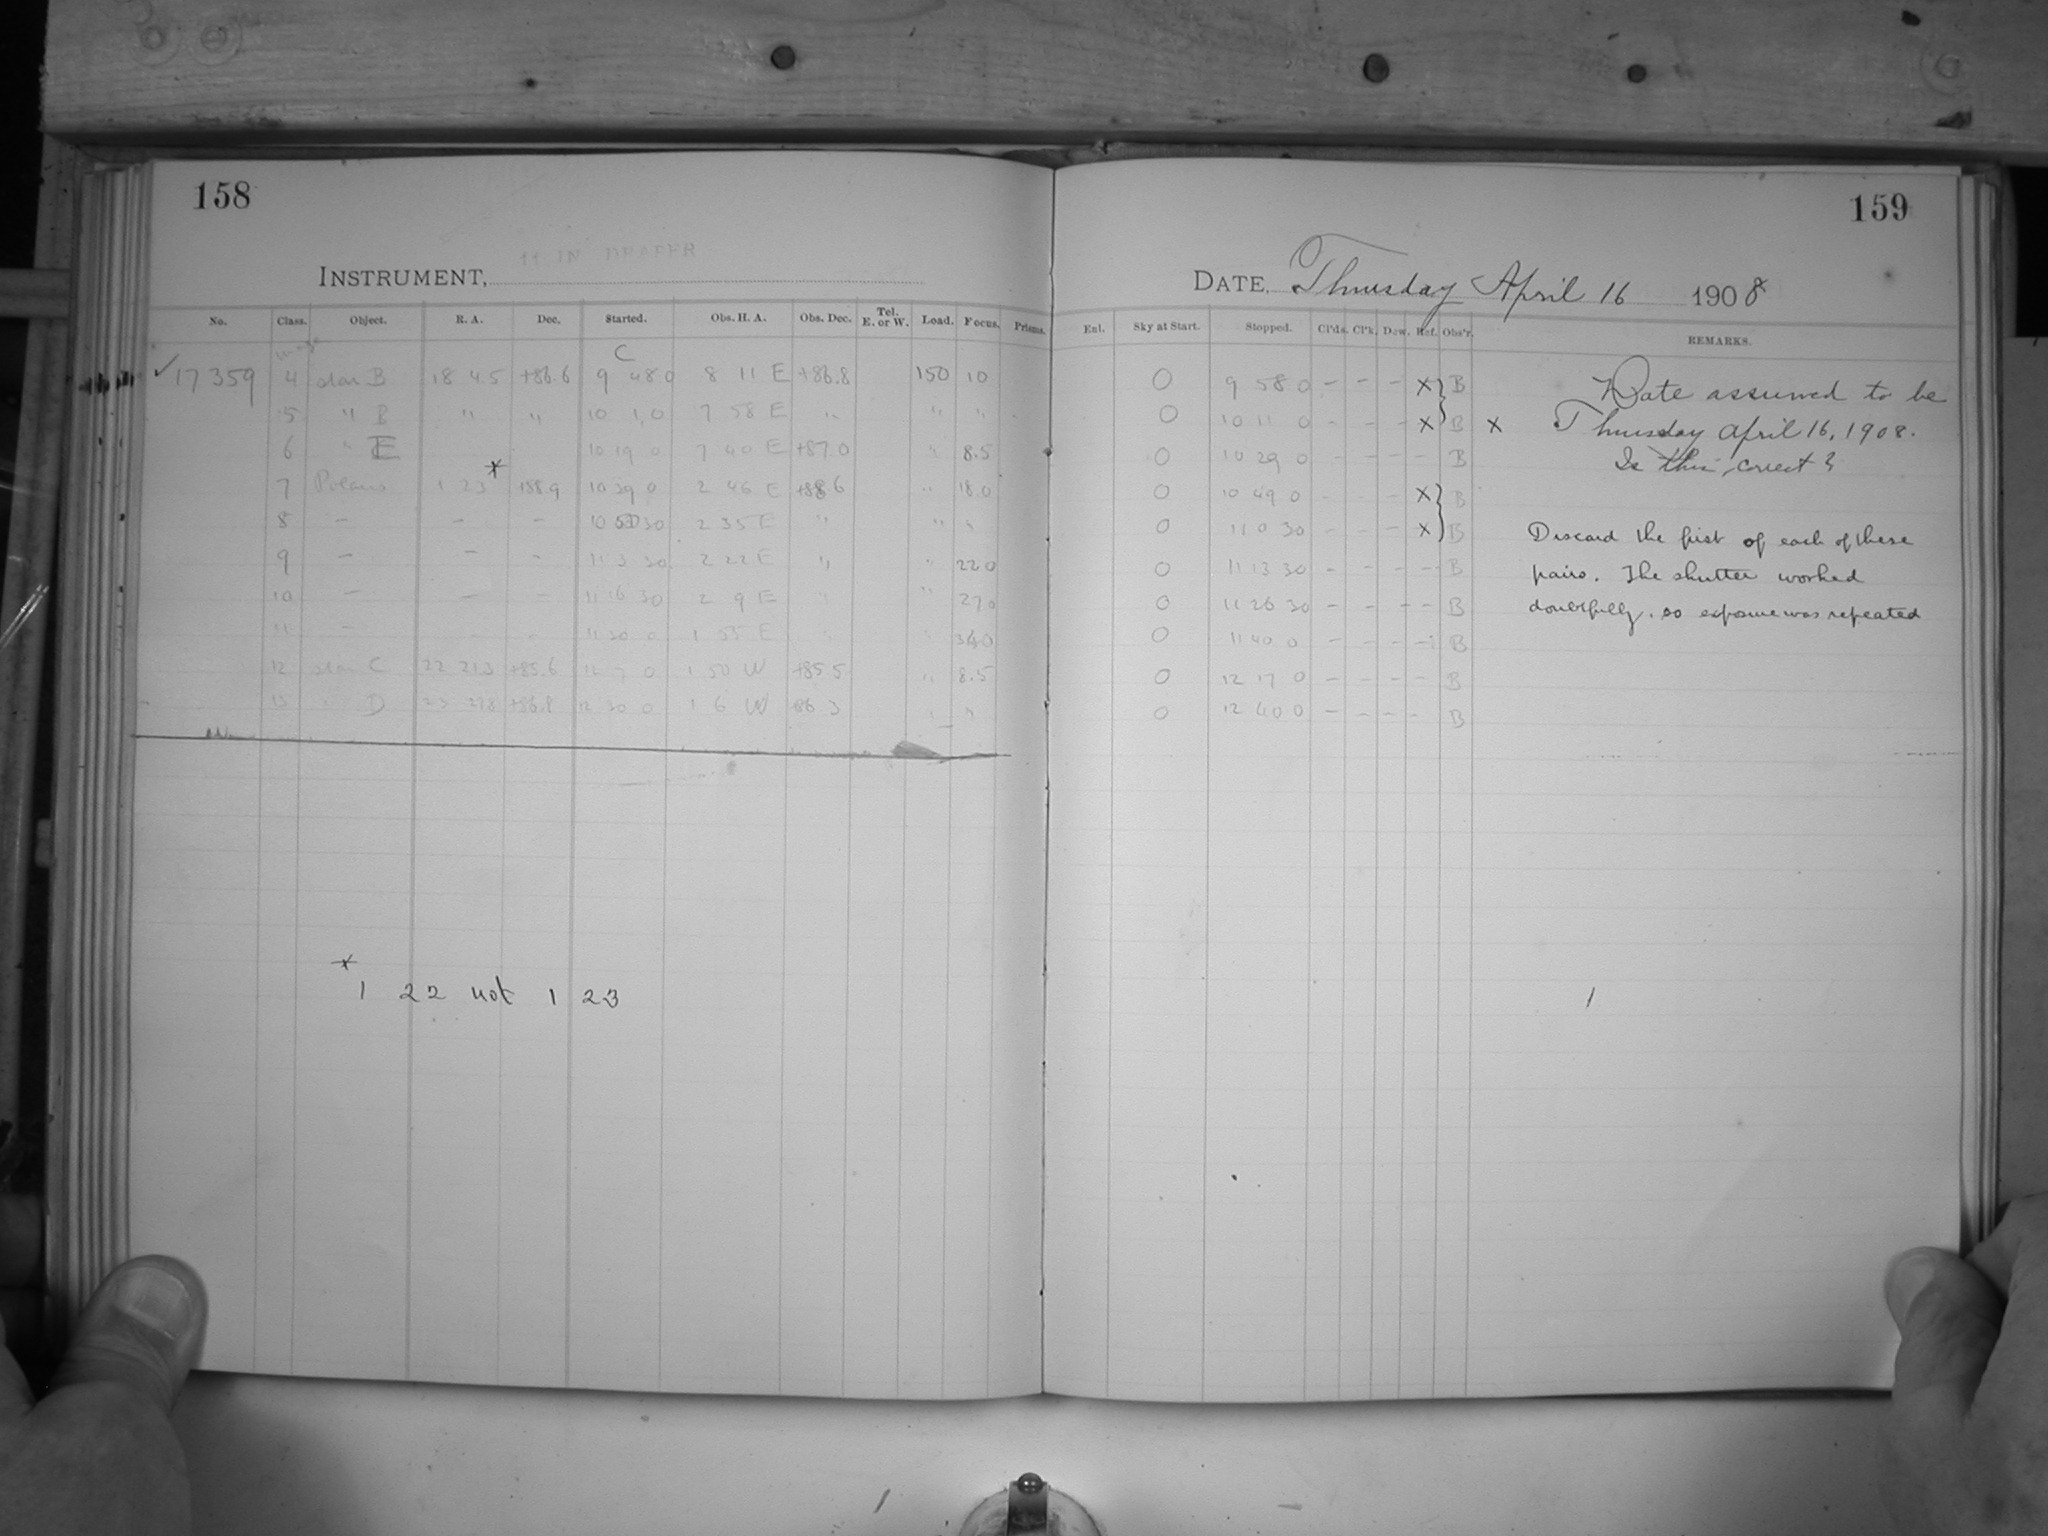 158
11 IN DRAPER
INSTRUMENT,
No. Class. Object. R. A. Dec. Started. Obs. H. A. Obs. Dec. Tel. E. or W. Load. Focus. Prisms.
Image C
✓17359 4 star B 18 45 +86.6 9 48 0 8 11 E +86.8 150 10
5 " B " " 10 1 0 7 58 E " " "
6 " E 10 19 0 7 40 E +87.0 " 8.5
7 Polaris 1 23* +88.9 10 39 0 2 46 E +88.6 " 18.0
8 – – – 10 50 30 2 35 E " " "
9 – – – 11 3 30 2 22 E " " 22.0
10 – – – 11 16 30 2 9 E " " 27.0
11 – - - 11 30 0 1 55 E " " 34.0
12 star C 22 21.3 +85.6 12 7 0 1 50 W +85.5 " 8.5
13 " D 23 27.8 +86.8 12 30 0 1 6 W 86.3 " "
*
1 22 not 1 23
159
DATE, Thursday April 16 1908
Enl. Sky at Start. Stopped. Cl'ds. Cl'k. Dew. Ref. Obs'r. REMARKS.
O 9 58 0 – – – X B Date assumed to be
O 10 11 0 – – – X B X Thursday April 16, 1908.
O 10 29 0 – – – – B Is this correct?
O 10 49 0 – – – X B
O 11 0 30 – – – X B Discard the first of each of these
O 11 13 30 – – – – B pairs. The shutter worked
O 11 26 30 – – – – B doubtfully, so exposure was repeated
O 11 40 0 – – – – B
O 12 17 0 – – – – B
O 12 40 0 – – – – B